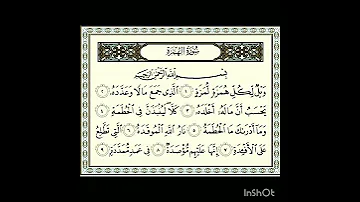 سُورَةُ الهُمَزَة
بِسْمِ اللَّهِ الرَّحْمَٰنِ الرَّحِيمِ
وَيْلٌ لِّكُلِّ هُمَزَةٍ لُّمَزَةٍ ١ الَّذِي جَمَعَ مَالًا وَعَدَّدَهُ ٢
يَحْسَبُ أَنَّ مَالَهُ أَخْلَدَهُ ٣ كَلَّا لَيُنبَذَنَّ فِي الْحُطَمَةِ ٤
وَمَا أَدْرَاكَ مَا الْحُطَمَةُ ٥ نَارُ اللَّهِ الْمُوقَدَةُ ٦ الَّتِي تَطَّلِعُ
عَلَى الْأَفْئِدَةِ ٧ إِنَّهَا عَلَيْهِم مُّؤْصَدَةٌ ٨ فِي عَمَدٍ مُّمَدَّدَةٍ ٩
InShOt